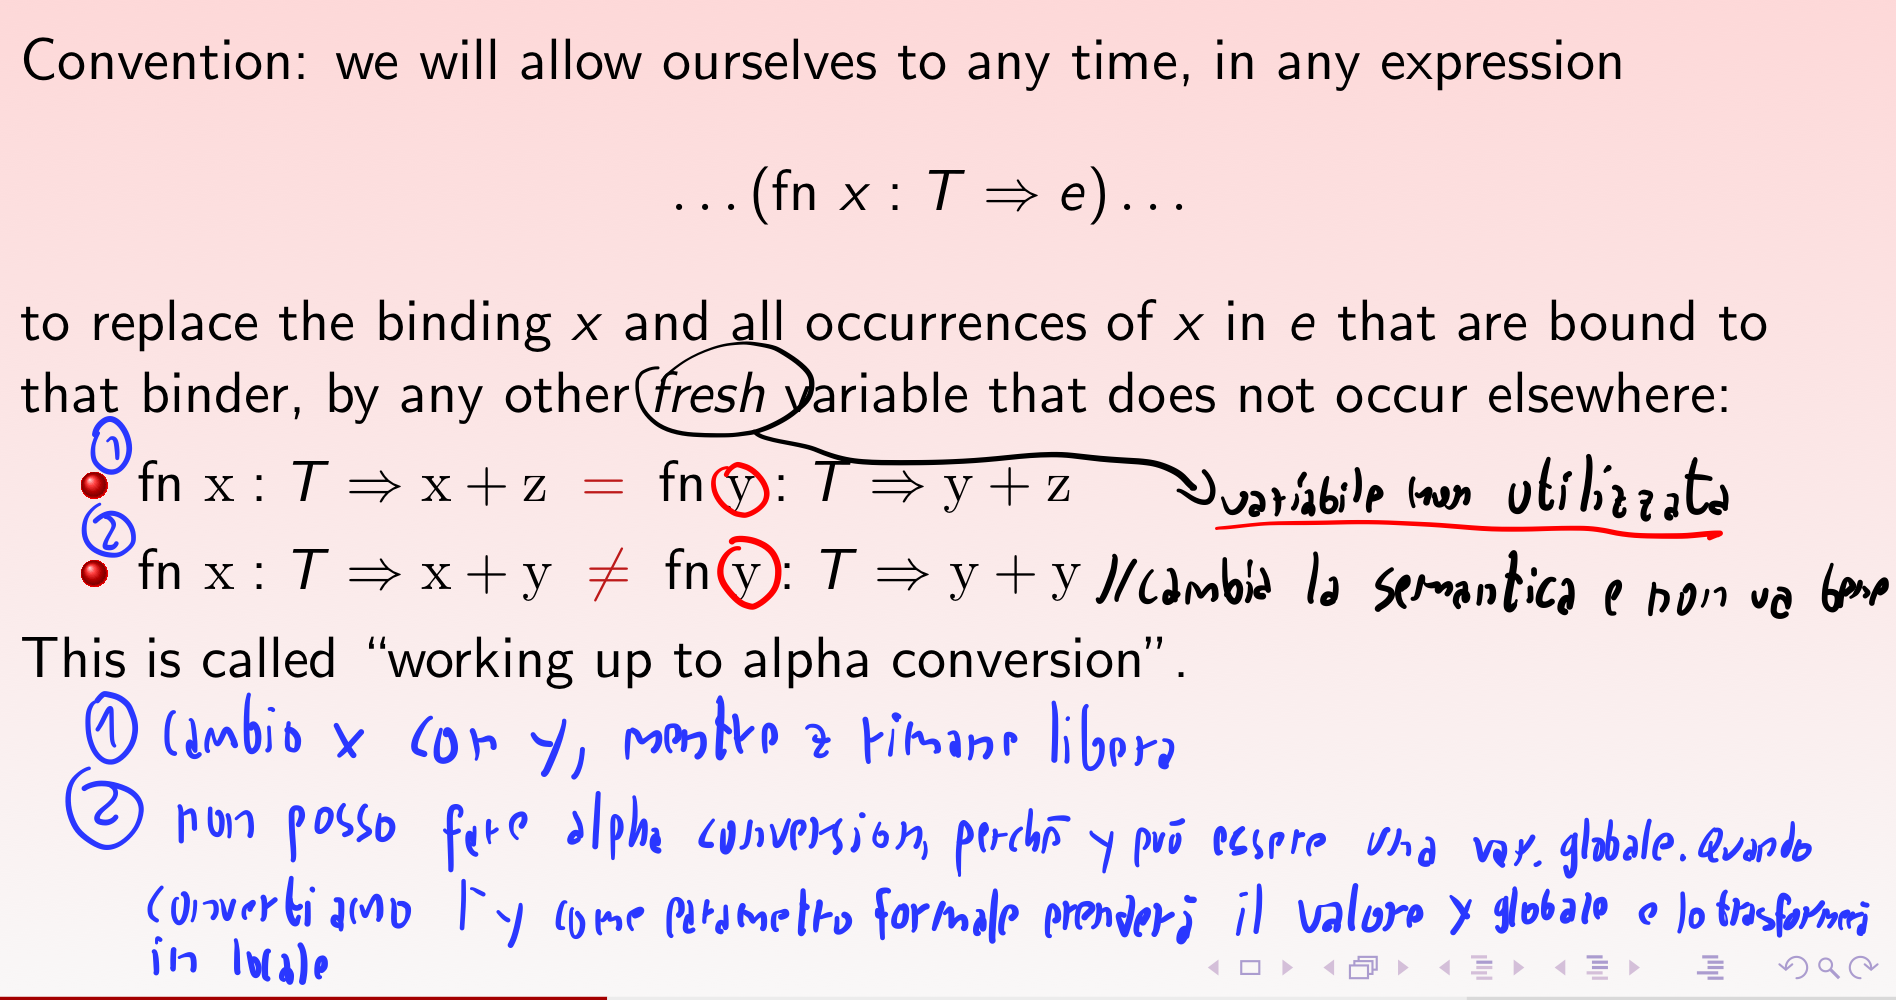 Convention: we will allow ourselves to any time, in any expression
...(fn x : T ⇒ e)...
to replace the binding x and all occurrences of x in e that are bound to
that binder, by any other fresh variable that does not occur elsewhere:
① fn x : T ⇒ x + z = fn y : T ⇒ y + z variabile non utilizzata
② fn x : T ⇒ x + y ≠ fn y : T ⇒ y + y //cambia la semantica e non va bene
This is called “working up to alpha conversion”.
① cambio x con y, mentre z rimane libera
② non posso fare alpha conversion, perchē y può essere una var. globale. Quando
convertiamo l'y come parametro formale prenderà il valore y globale e lo trasformerà
in locale